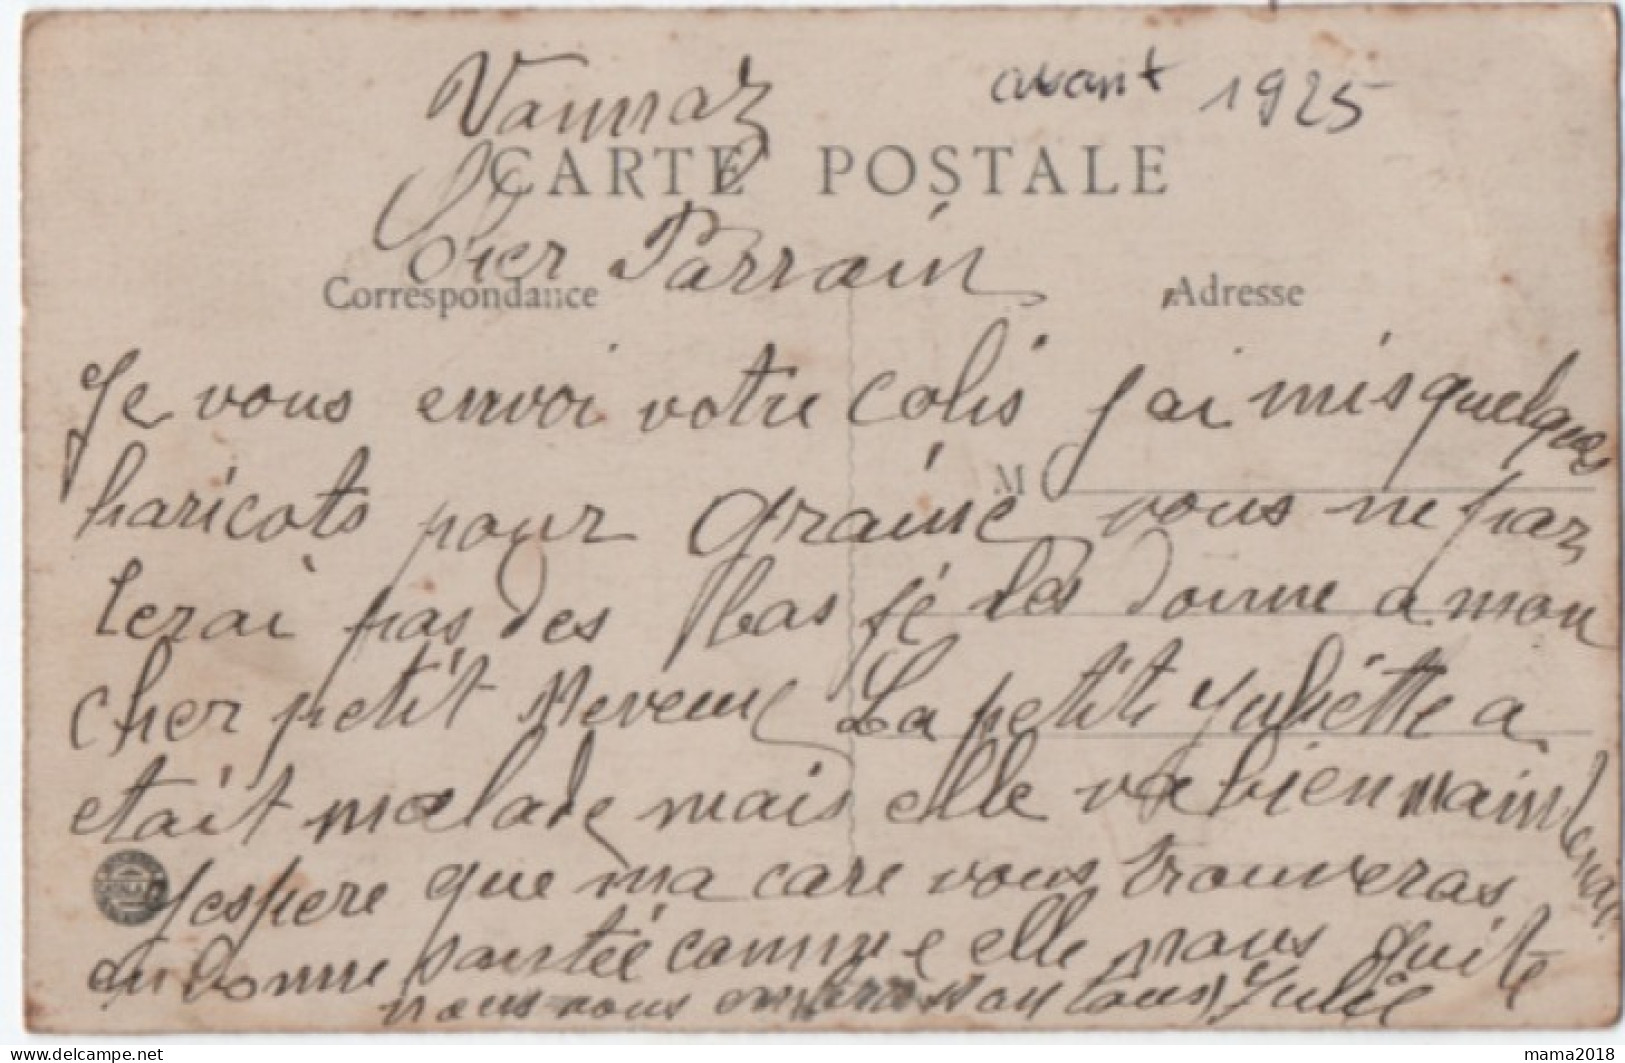 Vannaz
avant 1925
CARTE POSTALE
Cher Parrain
Correspondance
Adresse
Je vous envoi votre colis j'ai mis quelques
M
haricots pour graine vous ne par
lerai pas des bas je les donne a mon
cher petit Neveux La petite Juliette a
etait malade mais elle va bien maintenant
J'espere que ma care vous trouveras
en bonne santée comme elle nous quite
nous nous embrasson tous Julie
mama2018